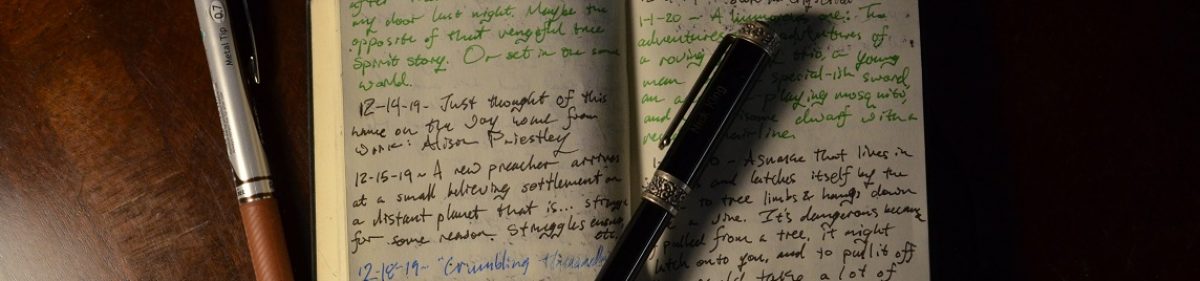 0.7
Metal Tip
after
my door last night. Maybe the
opposite of that vengeful tree
spirit story. Or set in the same
world.
12-14-19- Just thought of this
name on the way home from
work: Alison Priestley
12-15-19- A new preacher arrives
at a small believing settlement on
a distant planet that is... strange
for some reason. Struggles ensue,
etc.
12-18-19- "Crumbling
1-1-20- A humorous one: The
adventures adventures of
a roving trio, a young
man special-ish sword,
an playing mosquito,
and dwarf with a
hairline.
A snake that lives in
and latches itself by the
to tree limbs & hangs down
a vine. It's dangerous because
pulled from a tree, it might
latch onto you, and to pull it off
would take a lot of
King